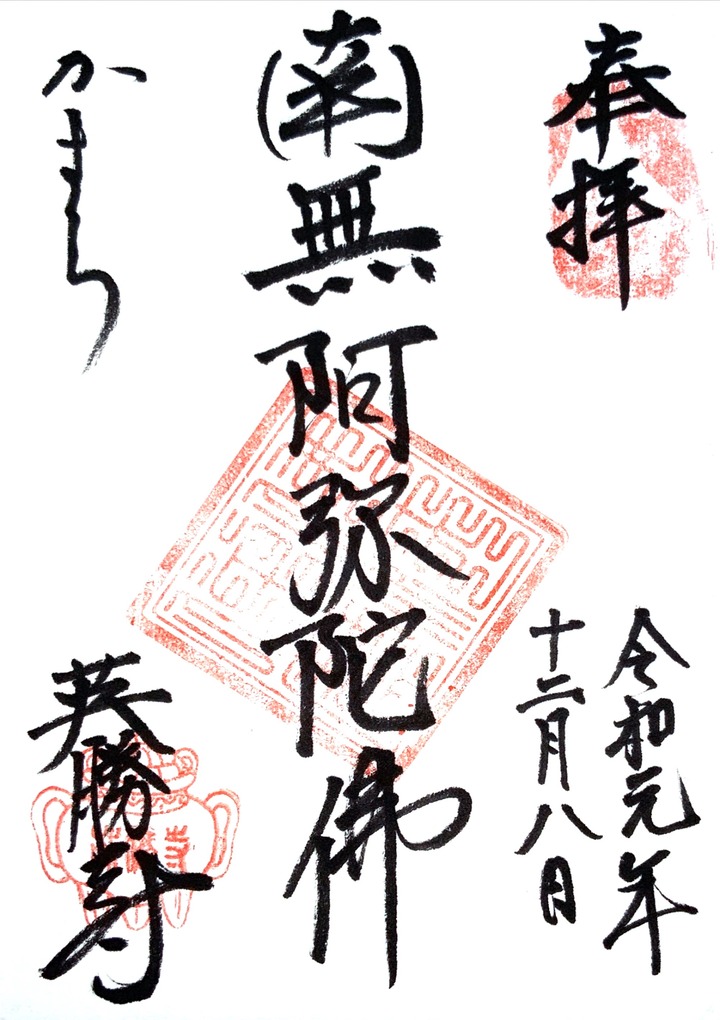 奉拝
令和元年
十二月八日
南無阿弥陀佛
かまくら
英勝寺